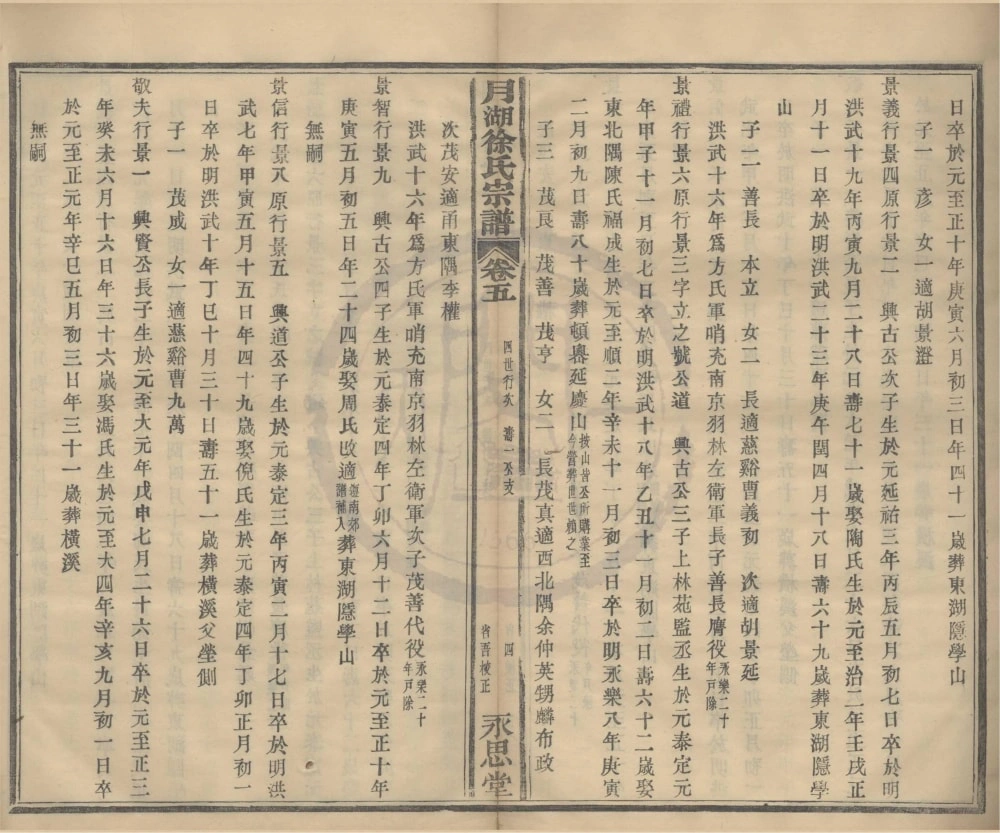 日卒於元至正十年庚寅六月初三日年四十一歲葬東湖隱學山
子一　彥　女一適胡景澄
景義行景四原行景二　興古公次子生於元延祐三年丙辰五月初七日卒於明
洪武十九年丙寅九月二十八日壽七十一歲娶陶氏生於元至治二年壬戌正
月十一日卒於明洪武二十三年庚午閏四月十八日壽六十九歲葬東湖隱學
山
子二　善長　本立　女二　長適慈谿曹義初　次適胡景延
洪武十六年為方氏軍哨充南京羽林左衛軍長子善長膺役永樂二十年戸除
景禮行景六原行景三字立之號公道　興古公三子上林苑監丞生於元泰定元
年甲子十一月初七日卒於明洪武十八年乙丑十一月初二日壽六十二歲娶
東北隅陳氏福成生於元至順二年辛未十一月初三日卒於明永樂八年庚寅
二月初九日壽八十歲葬頓嶴延慶山按山皆公所購業至今營葬世世賴之
子三　茂良　茂善　茂亨　女二　長茂真適西北隅余仲英甥麟布政
月湖徐氏宗譜　卷五　四世行次　壽一公支　四　省吾棱正　永思堂
次茂安適甬東隅李權
洪武十六年為方氏軍哨充南京羽林左衛軍次子茂善代役永樂二十年戸除
景智行景九　興古公四子生於元泰定四年丁卯六月十二日卒於元至正十年
庚寅五月初五日年二十四歲娶周氏改適從南郊譜補入葬東湖隱學山
無嗣
景信行景八原行景五　興道公子生於元泰定三年丙寅二月十七日卒於明洪
武七年甲寅五月十五日年四十九歲娶倪氏生於元泰定四年丁卯正月初一
日卒於明洪武十年丁巳十月三十日壽五十一歲葬橫溪父塋側
子一　茂成　女一適慈谿曹九萬
敬夫行景一　興賢公長子生於元至大元年戊申七月二十六日卒於元至正三
年癸未六月十六日年三十六歲娶馮氏生於元至大四年辛亥九月初一日卒
於元至正元年辛巳五月初三日年三十一歲葬橫溪
無嗣